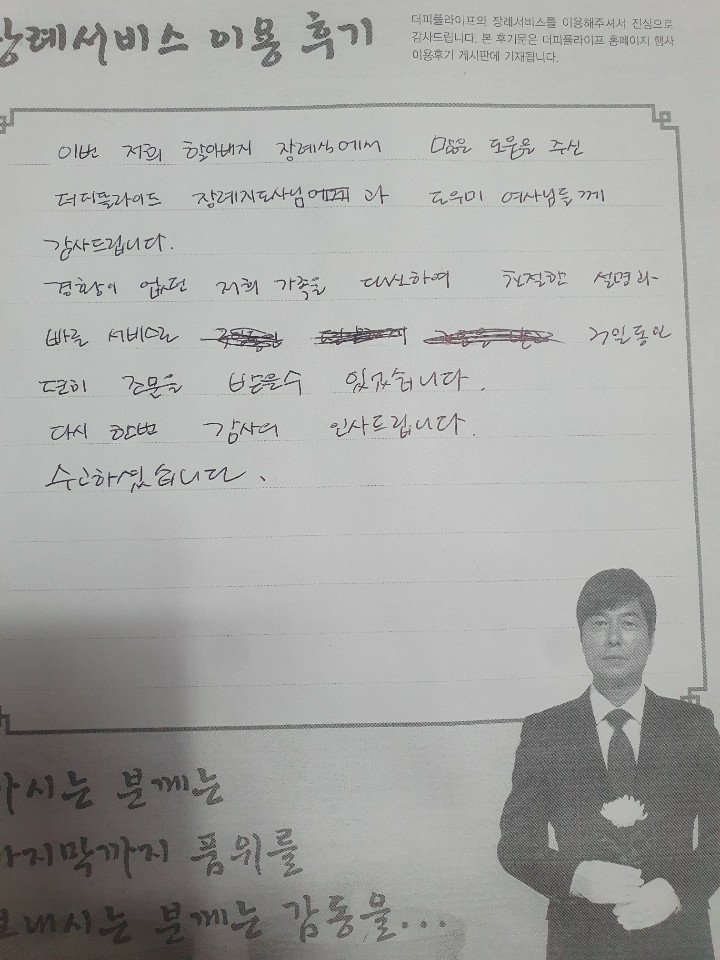 장례서비스 이용 후기
더피플라이프의 장례서비스를 이용해주셔서 진심으로
감사드립니다. 본 후기문은 더피플라이프 홈페이지 행사
이용후기 게시판에 기재됩니다.
이번 저희 할아버지 장례식에서 많은 도움을 주신
더피플라이프 장례지도사님 과 도우미 여사님들께
감사드립니다.
경황이 없던 저희 가족을 대신하여 친절한 설명과
빠른 서비스로 3일동안
편히 조문을 받을수 있었습니다.
다시 한번 감사의 인사드립니다.
수고하셨습니다.
가시는 분께는
마지막까지 품위를
보내시는 분께는 감동을...